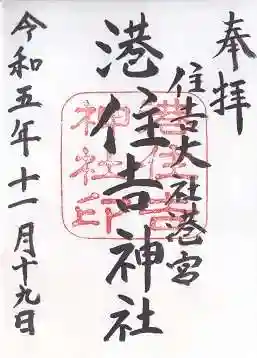 奉拝
住吉大社港宮
港住吉神社
令和五年十一月十九日
港住吉
神社印